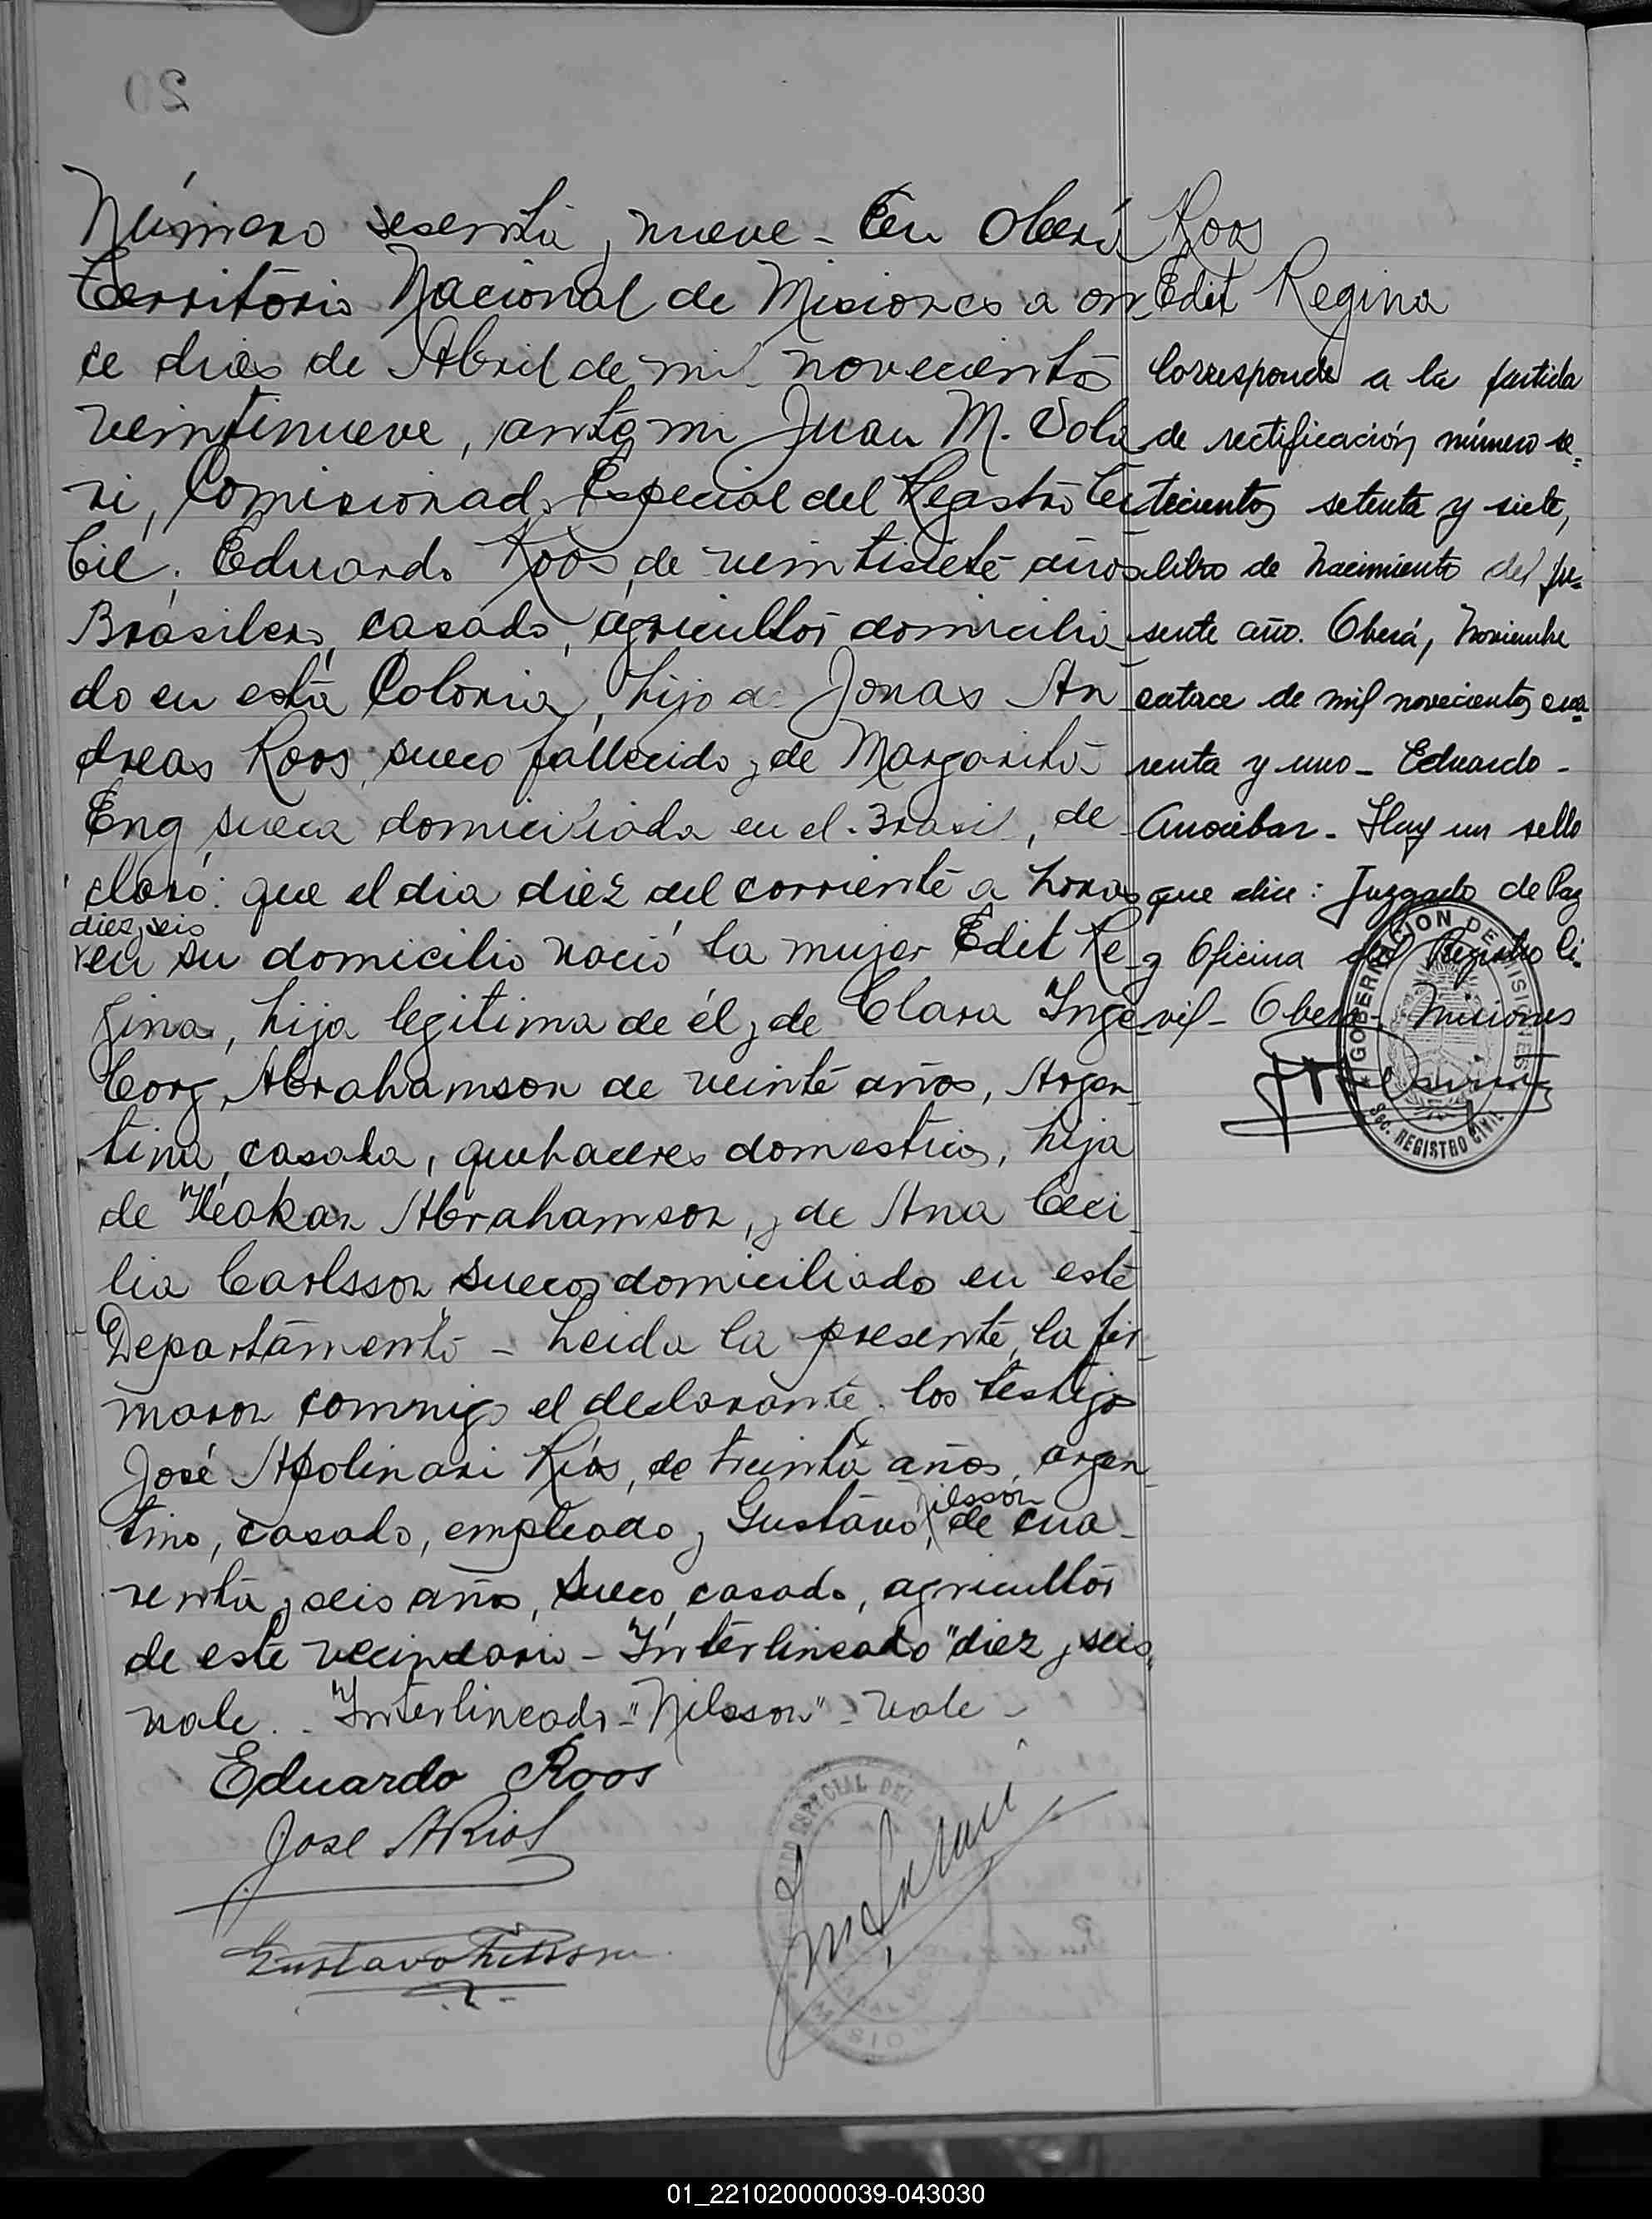 Número sesenta y nueve - En Oberá
Territorio Nacional de Misiones a on-
ce dias de Abril de mil novecientos
veintinueve, ante mi Juan M. Sola
ri, Comisionado Especial del Registro Ci
vil, Eduardo Roos, de veintisiete años
Brasilero, casado, agricultor domicilia
do en esta Colonia, hijo de Jonas An
dreas Roos, sueco fallecido y de Margarita
Eng, sueca domiciliada en el Brasil, de
claró: que el dia diez del corriente a horas
diez y seis
en su domicilio nació la mujer Edit Re
gina, hija legitima de él y de Clara Inge
borg Abrahamson de veinte años, Argen
tina, casada, quehaceres domesticos, hija
de Heakan Abrahamson, y de Ana Ceci
lia Carlsson, suecos domiciliados en este
Departamento - Leida la presente, la fir
maron conmigo el declarante y los testigos
José Apolinari Rios, de treinta años, argen
tino, casado, empleado y Gustavo Nilsson de cua-
renta y seis años, sueco, casado, agricultor
de este vecindario - Interlineado "diez y seis"
vale. - Interlineado - "Nilsson" - vale -
Eduardo Roos
Jose A Rios
Gustavo Nilsson
Roos
Edit Regina
Corresponde a la partida
de rectificación número se=
tecientos setenta y siete,
libro de Nacimiento del pre=
sente año. Oberá, Noviembre
catorce de mil novecientos cua=
renta y uno - Eduardo -
Anocibar - Hay un sello
que dice: Juzgado de Paz
y Oficina del Registro Ci-
vil - Oberá - Misiones
GOBERNACION DE MISIONES
Sec. REGISTRO CIVIL
01_221020000039-043030